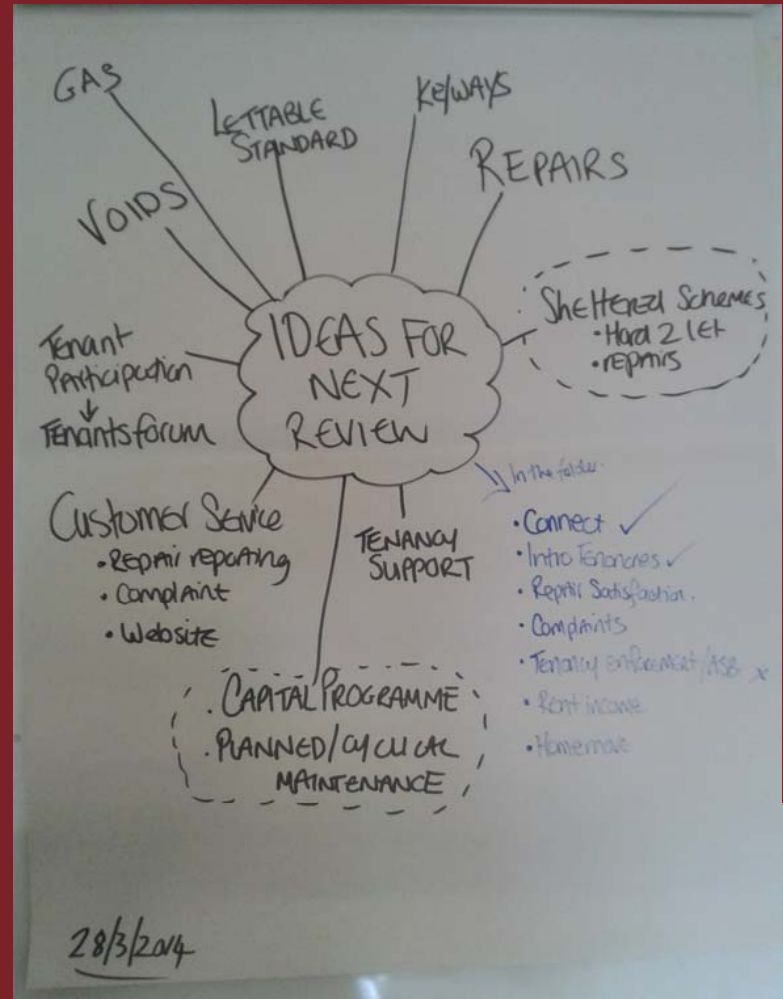 GAS
LETTABLE
STANDARD
KEYWAYS
VOIDS
REPAIRS
IDEAS FOR
NEXT
REVIEW
Sheltered Schemes
• Hard 2 let
• repairs
Tenant
Participation
↓
Tenants forum
Customer Service
• Repair reporting
• Complaint
• Website
TENANCY
SUPPORT
In the folder.
• Connect ✓
• Intro Tenancies ✓
• Repair Satisfaction.
• Complaints
• Tenancy enforcement/ASB x
• Rent income
• Homemove
. CAPITAL PROGRAMME
. PLANNED/CYCLICAL
MAINTENANCE
28/3/2014